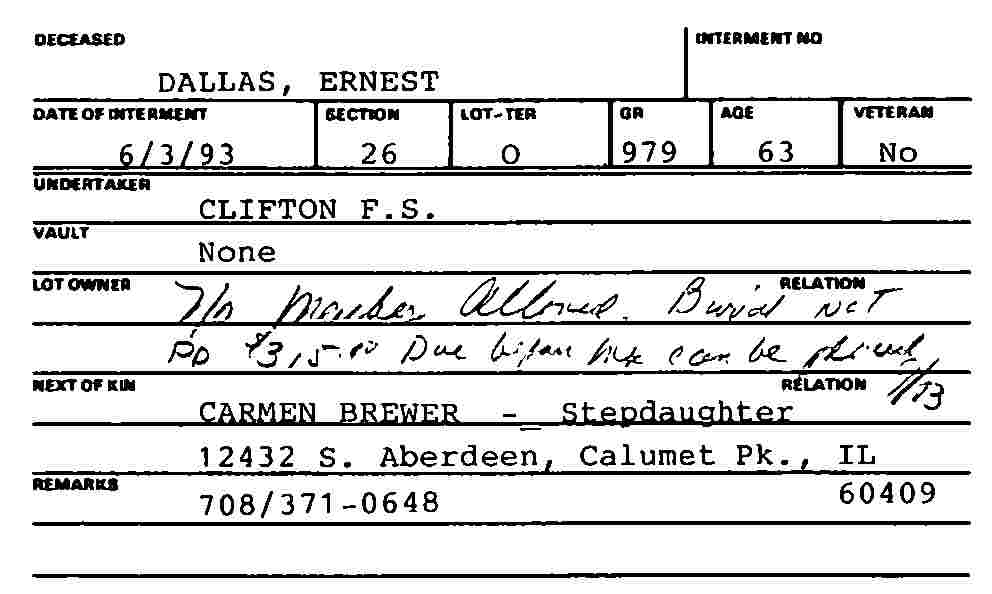 DECEASED INTERMENT NO
DALLAS, ERNEST
DATE OF INTERMENT SECTION LOT-TER GR AGE VETERAN
6/3/93 26 O 979 63 No
UNDERTAKER
CLIFTON F.S.
VAULT
None
LOT OWNER RELATION
No Marker Allowed. Burial not
Pd $315.00 Due before can be placed
NEXT OF KIN RELATION
CARMEN BREWER - Stepdaughter
12432 S. Aberdeen, Calumet Pk., IL
REMARKS
708/371-0648 60409